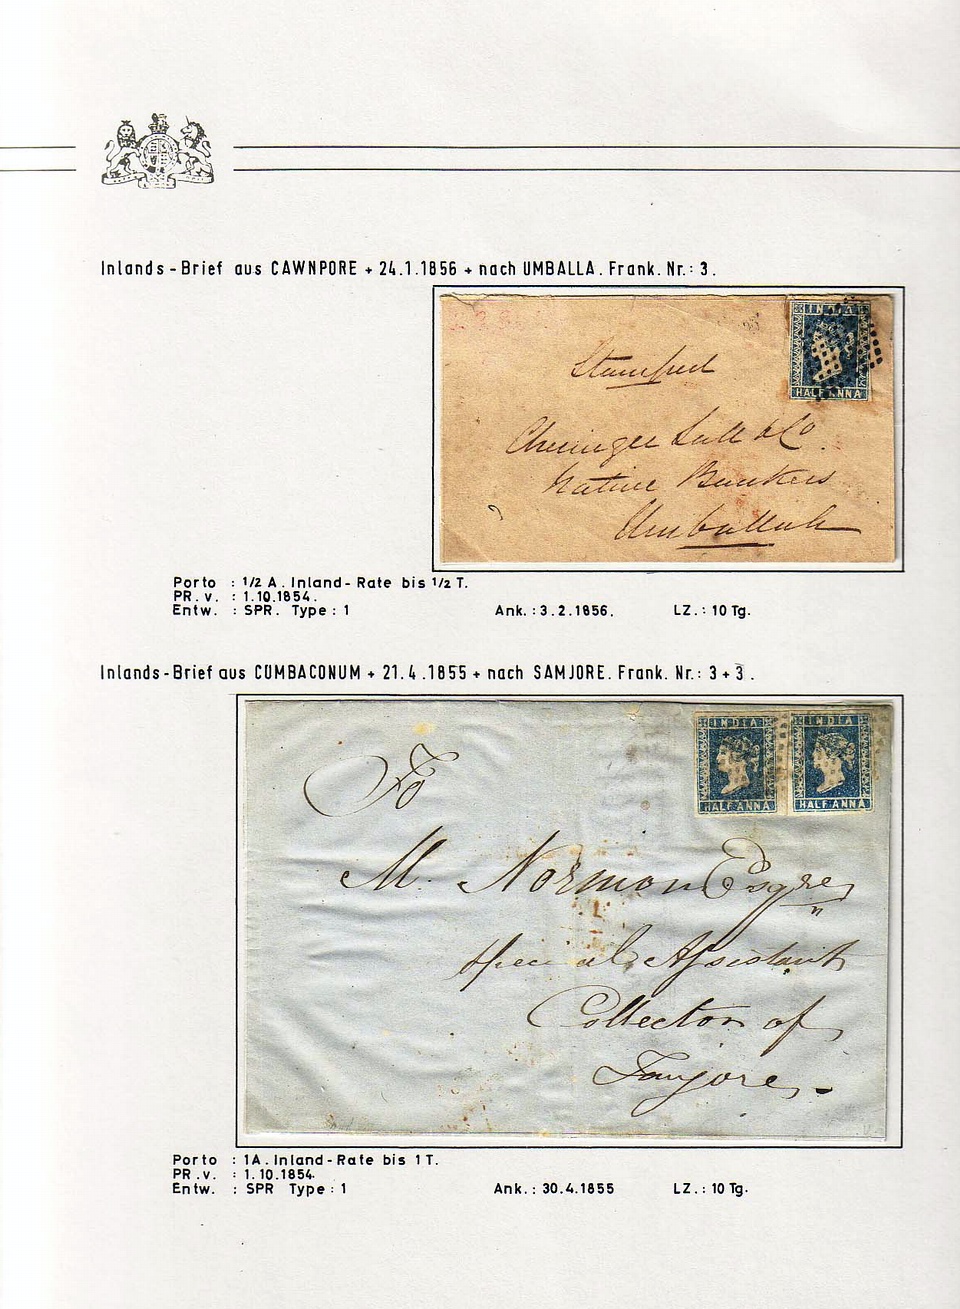 Inlands-Brief aus CAWNPORE + 24.1.1856 + nach UMBALLA. Frank. Nr.: 3.
INDIA
HALF ANNA
Stamped
Lall & Co.
Native Bankers
Umballah
Porto : 1/2 A. Inland-Rate bis 1/2 T.
PR. v. : 1.10.1854.
Entw. : SPR. Type: 1 Ank.: 3.2.1856. LZ.: 10 Tg.
Inlands-Brief aus CUMBACONUM + 21.4.1855 + nach SAMJORE. Frank. Nr.: 3+3.
INDIA INDIA
HALF ANNA HALF ANNA
To
M. Norman Esqre
Special Assistant
Collector of
Tanjore
Porto : 1A. Inland-Rate bis 1T.
PR.v. : 1.10.1854.
Entw. : SPR Type: 1 Ank.: 30.4.1855 LZ.: 10 Tg.